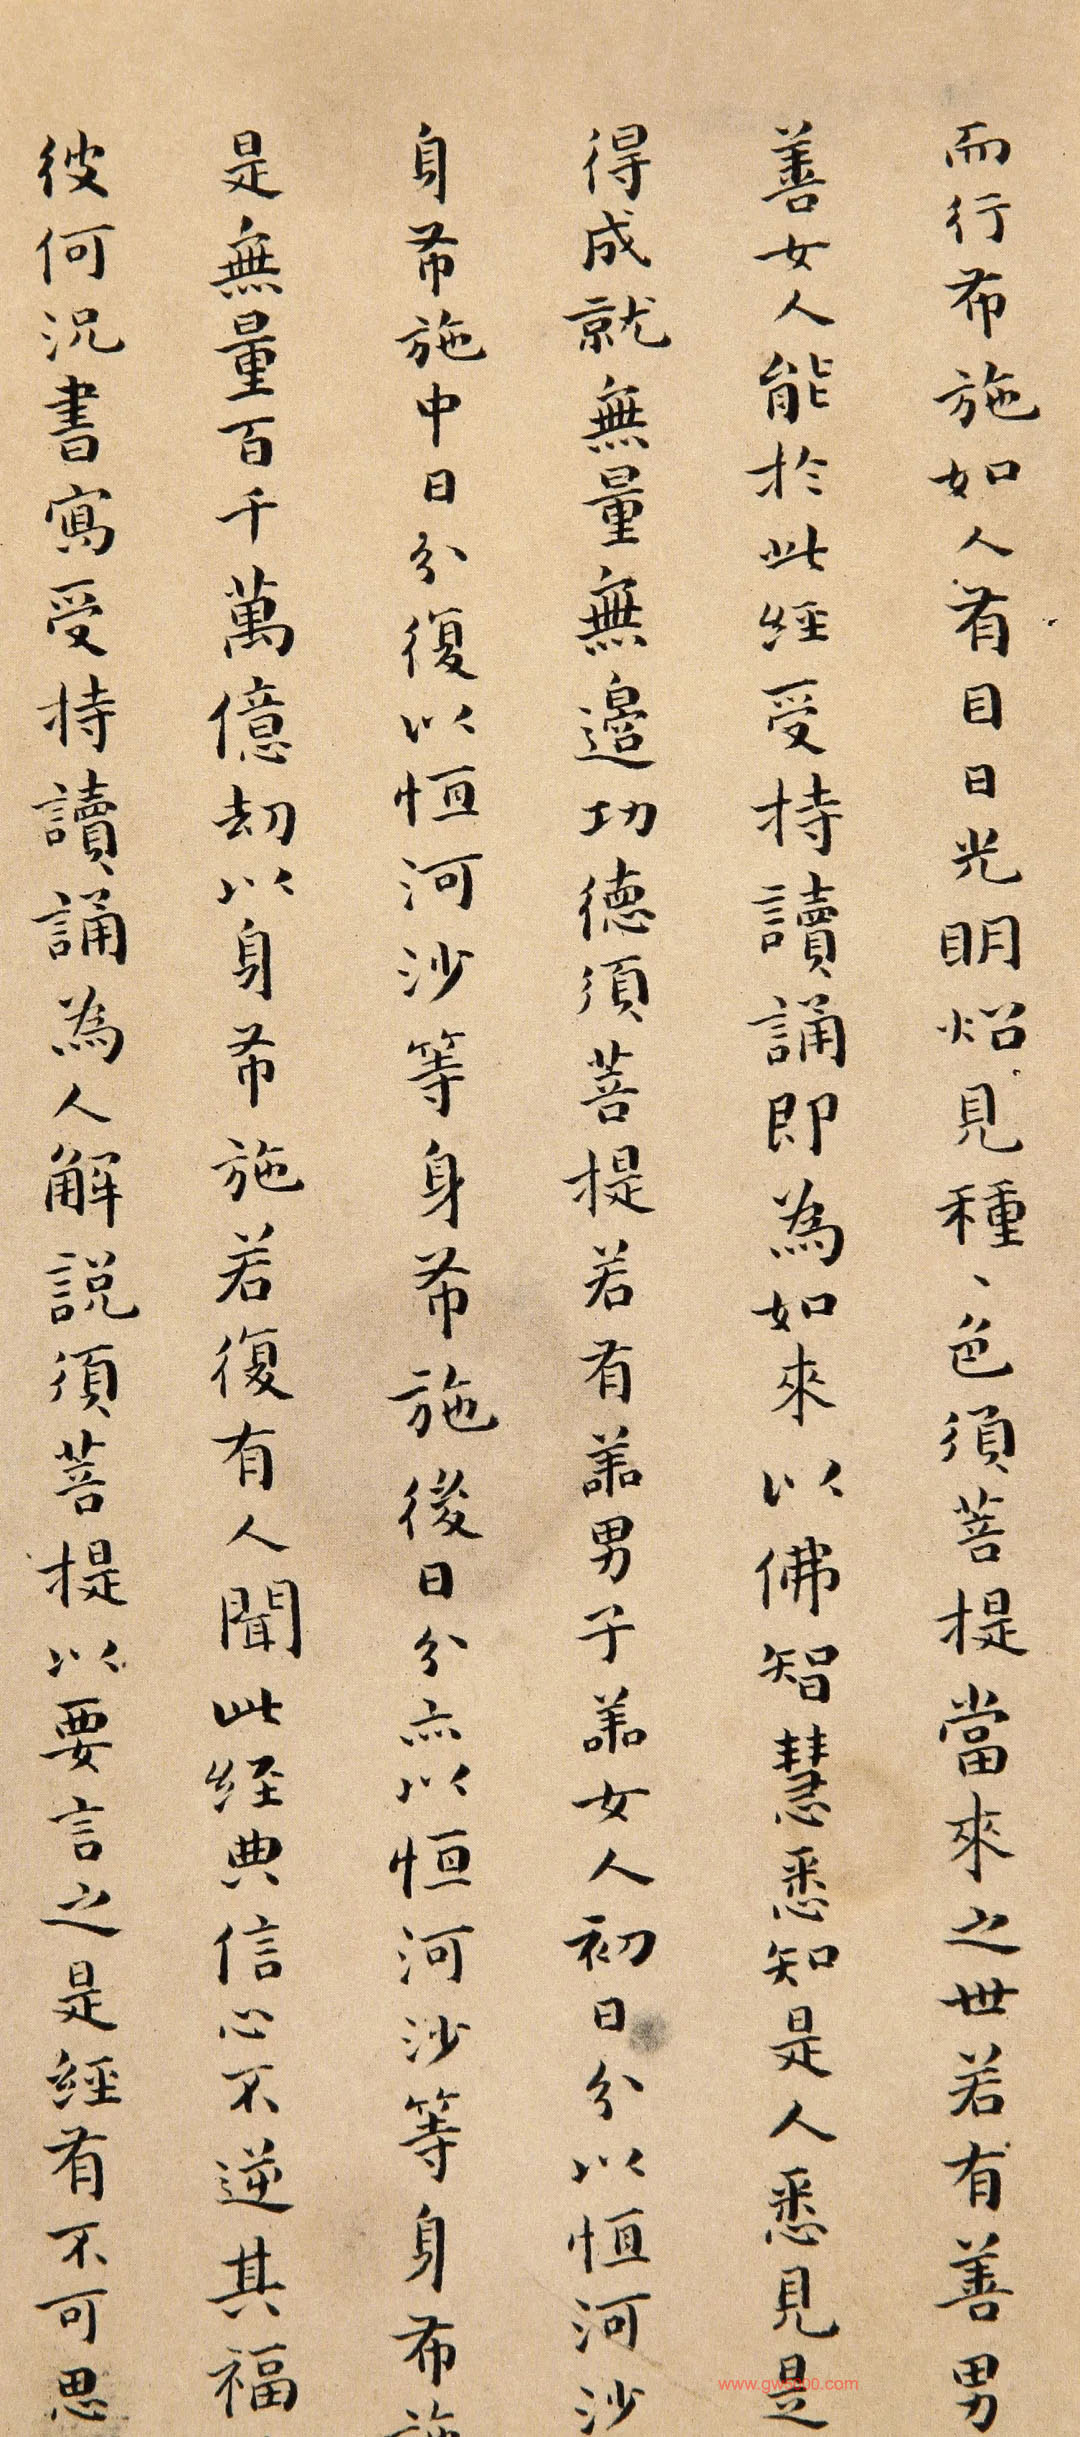 而行布施如人有目日光明炤見種、色須菩提當來之世若有善男
善女人能於此經受持讀誦即為如來以佛智慧悉知是人悉見是
得成就無量無邊功德須菩提若有善男子善女人初日分以恒河沙
身布施中日分復以恒河沙等身布施後日分亦以恒河沙等身布施
是無量百千萬億劫以身布施若復有人聞此經典信心不逆其福
彼何況書寫受持讀誦為人解說須菩提以要言之是經有不可思